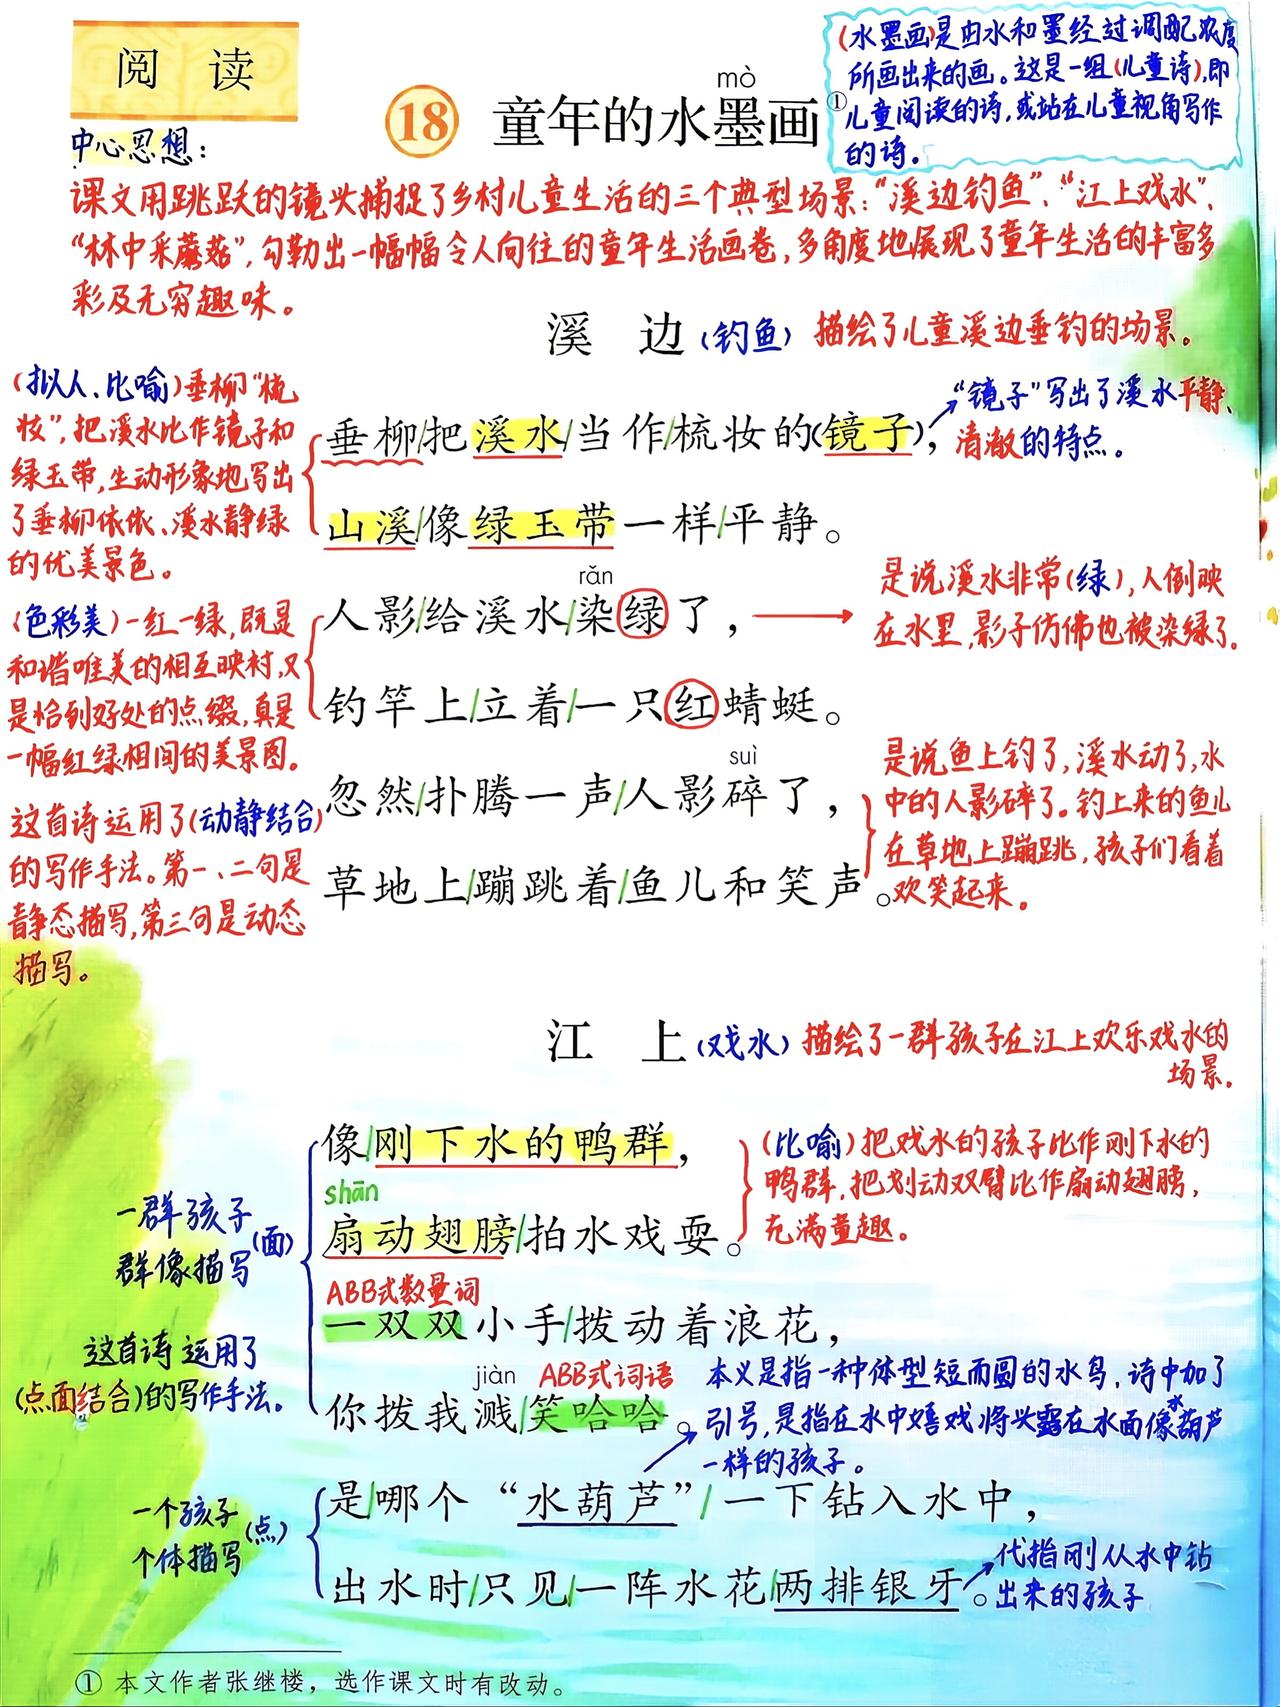 阅 读
mò
18 童年的水墨画①
(水墨画)是由水和墨经过调配浓度
所画出来的画。这是一组(儿童诗),即
儿童阅读的诗,或站在儿童视角写作
的诗。
中心思想:
课文用跳跃的镜头捕捉了乡村儿童生活的三个典型场景:“溪边钓鱼”、“江上戏水”、
“林中采蘑菇”,勾勒出一幅幅令人向往的童年生活画卷,多角度地展现了童年生活的丰富多
彩及无穷趣味。
溪 边(钓鱼) 描绘了儿童溪边垂钓的场景。
(拟人、比喻)垂柳“梳
妆”,把溪水比作镜子和
绿玉带,生动形象地写出
了垂柳依依、溪水静绿
的优美景色。
垂柳/把溪水/当作/梳妆的(镜子),
“镜子”写出了溪水平静、
清澈的特点。
山溪/像绿玉带一样/平静。
rǎn
人影/给溪水/染绿了,
是说溪水非常(绿),人倒映
在水里,影子仿佛也被染绿了。
(色彩美)一红一绿,既是
和谐唯美的相互映衬,又
是恰到好处的点缀,真是
一幅红绿相间的美景图。
钓竿上/立着/一只红蜻蜓。
suì
忽然/扑腾一声/人影碎了,
草地上/蹦跳着/鱼儿和笑声。
是说鱼上钓了,溪水动了,水
中的人影碎了。钓上来的鱼儿
在草地上蹦跳,孩子们看着
欢笑起来。
这首诗运用了(动静结合)
的写作手法。第一、二句是
静态描写,第三句是动态
描写。
江 上(戏水) 描绘了一群孩子在江上欢乐戏水的
场景.
像/刚下水的鸭群,
shān
扇动翅膀/拍水戏耍。
(比喻)把戏水的孩子比作刚下水的
鸭群,把划动双臂比作扇动翅膀,
充满童趣。
一群孩子
群像描写(面)
ABB式数量词
一双双小手/拨动着浪花,
jiàn ABB式词语
你拨我溅/笑哈哈。
这首诗运用了
(点面结合)的写作手法。
本义是指一种体型短而圆的水鸟,诗中加了
引号,是指在水中嬉戏将头露在水面像水葫芦
一样的孩子。
是/哪个“水葫芦”/一下钻入水中,
出水时/只见/一阵水花/两排银牙。
一个孩子
个体描写(点)
代指刚从水中钻
出来的孩子
① 本文作者张继楼,选作课文时有改动。